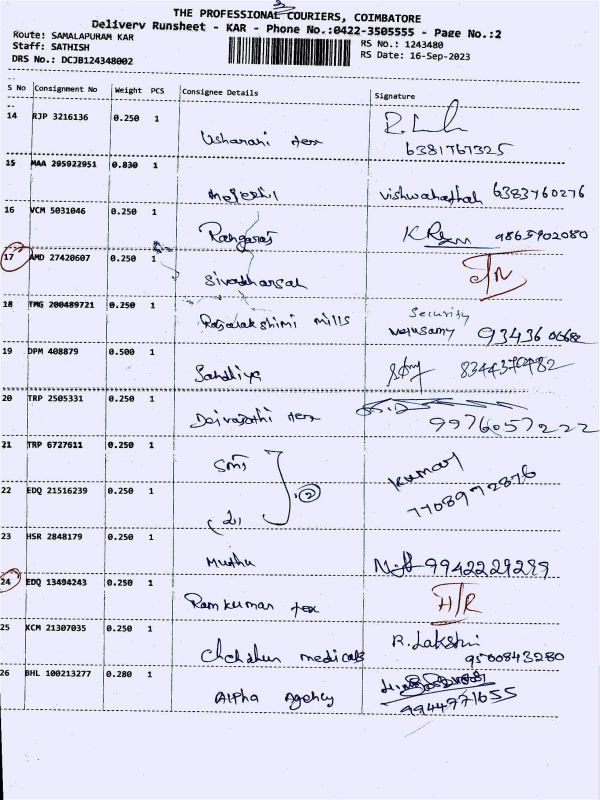 3
THE PROFESSIONAL COURIERS, COIMBATORE
Delivery Runsheet - KAR - Phone No.:0422-3505555 - Page No.:2
Route: SAMALAPURAM KAR
Staff: SATHISH
DRS No.: DCJB124348002
RS No.: 1243480
RS Date: 16-Sep-2023
S No Consignment No Weight PCS Consignee Details Signature
14 RJP 3216136 0.250 1
Usharani tex 6381767325
15 MAA 295922951 0.830 1
vishwanathah 6383760276
16 VCM 5031046 0.250 1
Rangaraj 9865902080
17 AMD 27420607 0.250 1
Sivadharsah
18 TMG 200489721 0.250 1
Rajalakshimi mills Security
Velusamy
19 DPM 408879 0.500 1
Sandhiya
20 TRP 2505331 0.250 1
Deivasathi tex 9976057222
21 TRP 6727611 0.250 1
SMS kumar
2 7708972876
22 EDQ 21516239 0.250 1
(2)
23 HSR 2848179 0.250 1
Muthu 9942229299
24 EDQ 13494243 0.250 1
Ramkumar tex H/R
25 KCM 21307035 0.250 1
medicals R. Lakshi
9500843280
26 BHL 100213277 0.280 1
Alpha Agency
9944971655